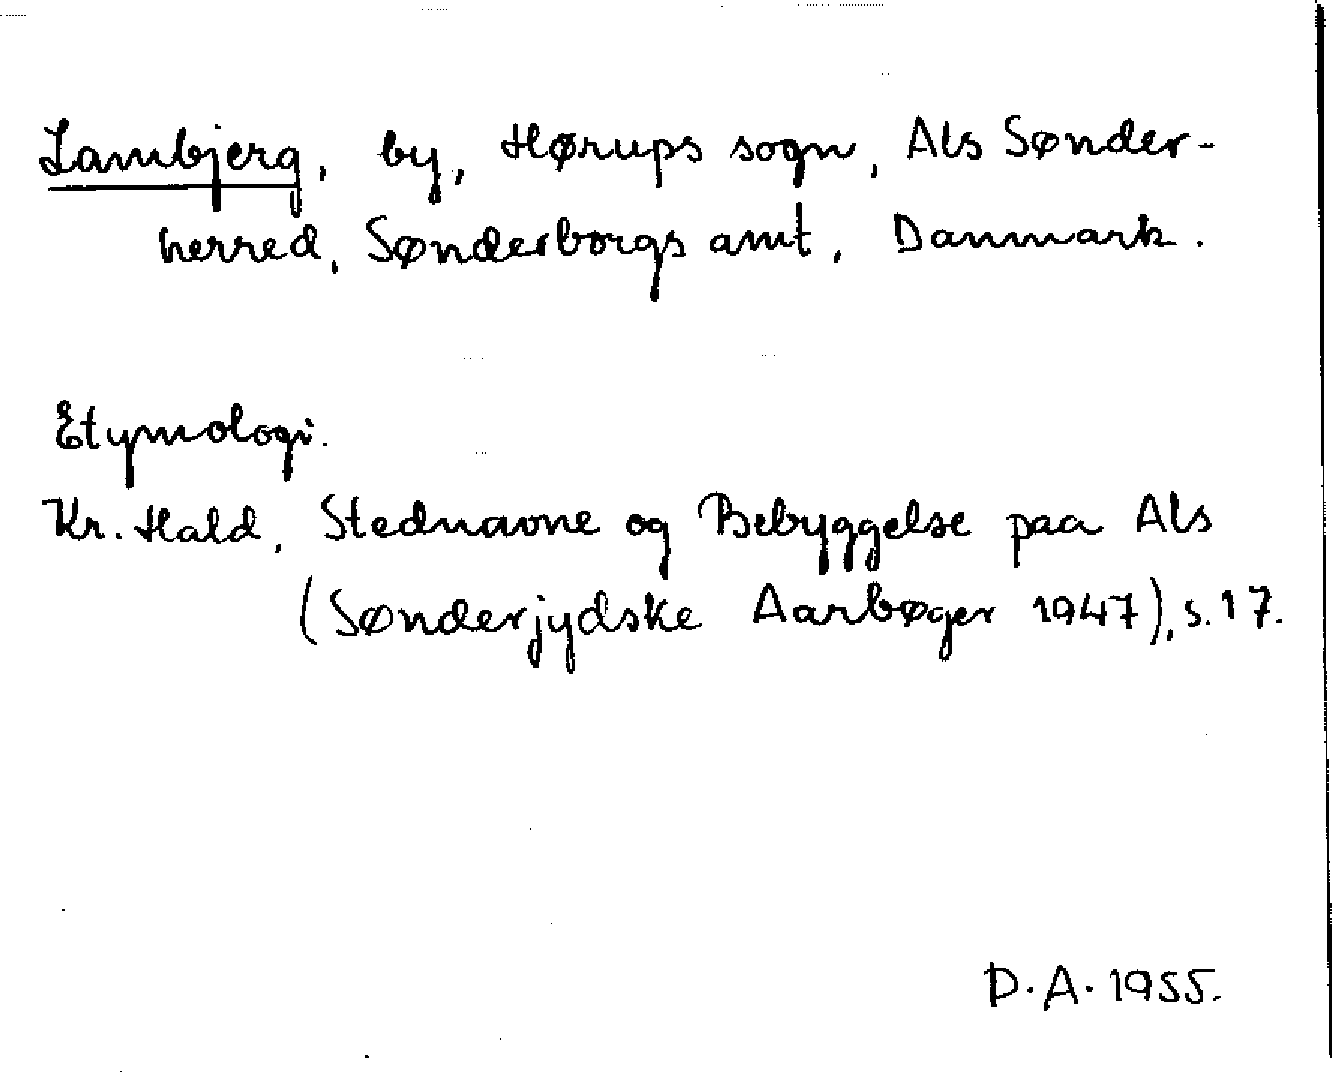 Lambjerg, by, Hørups sogn, Als Sønder-
herred, Sønderborgs amt, Danmark.
Etymologi.
Kr. Hald, Stednavne og Bebyggelse paa Als
(Sønderjydske Aarbøger 1947), s. 17.
D.A. 1955.